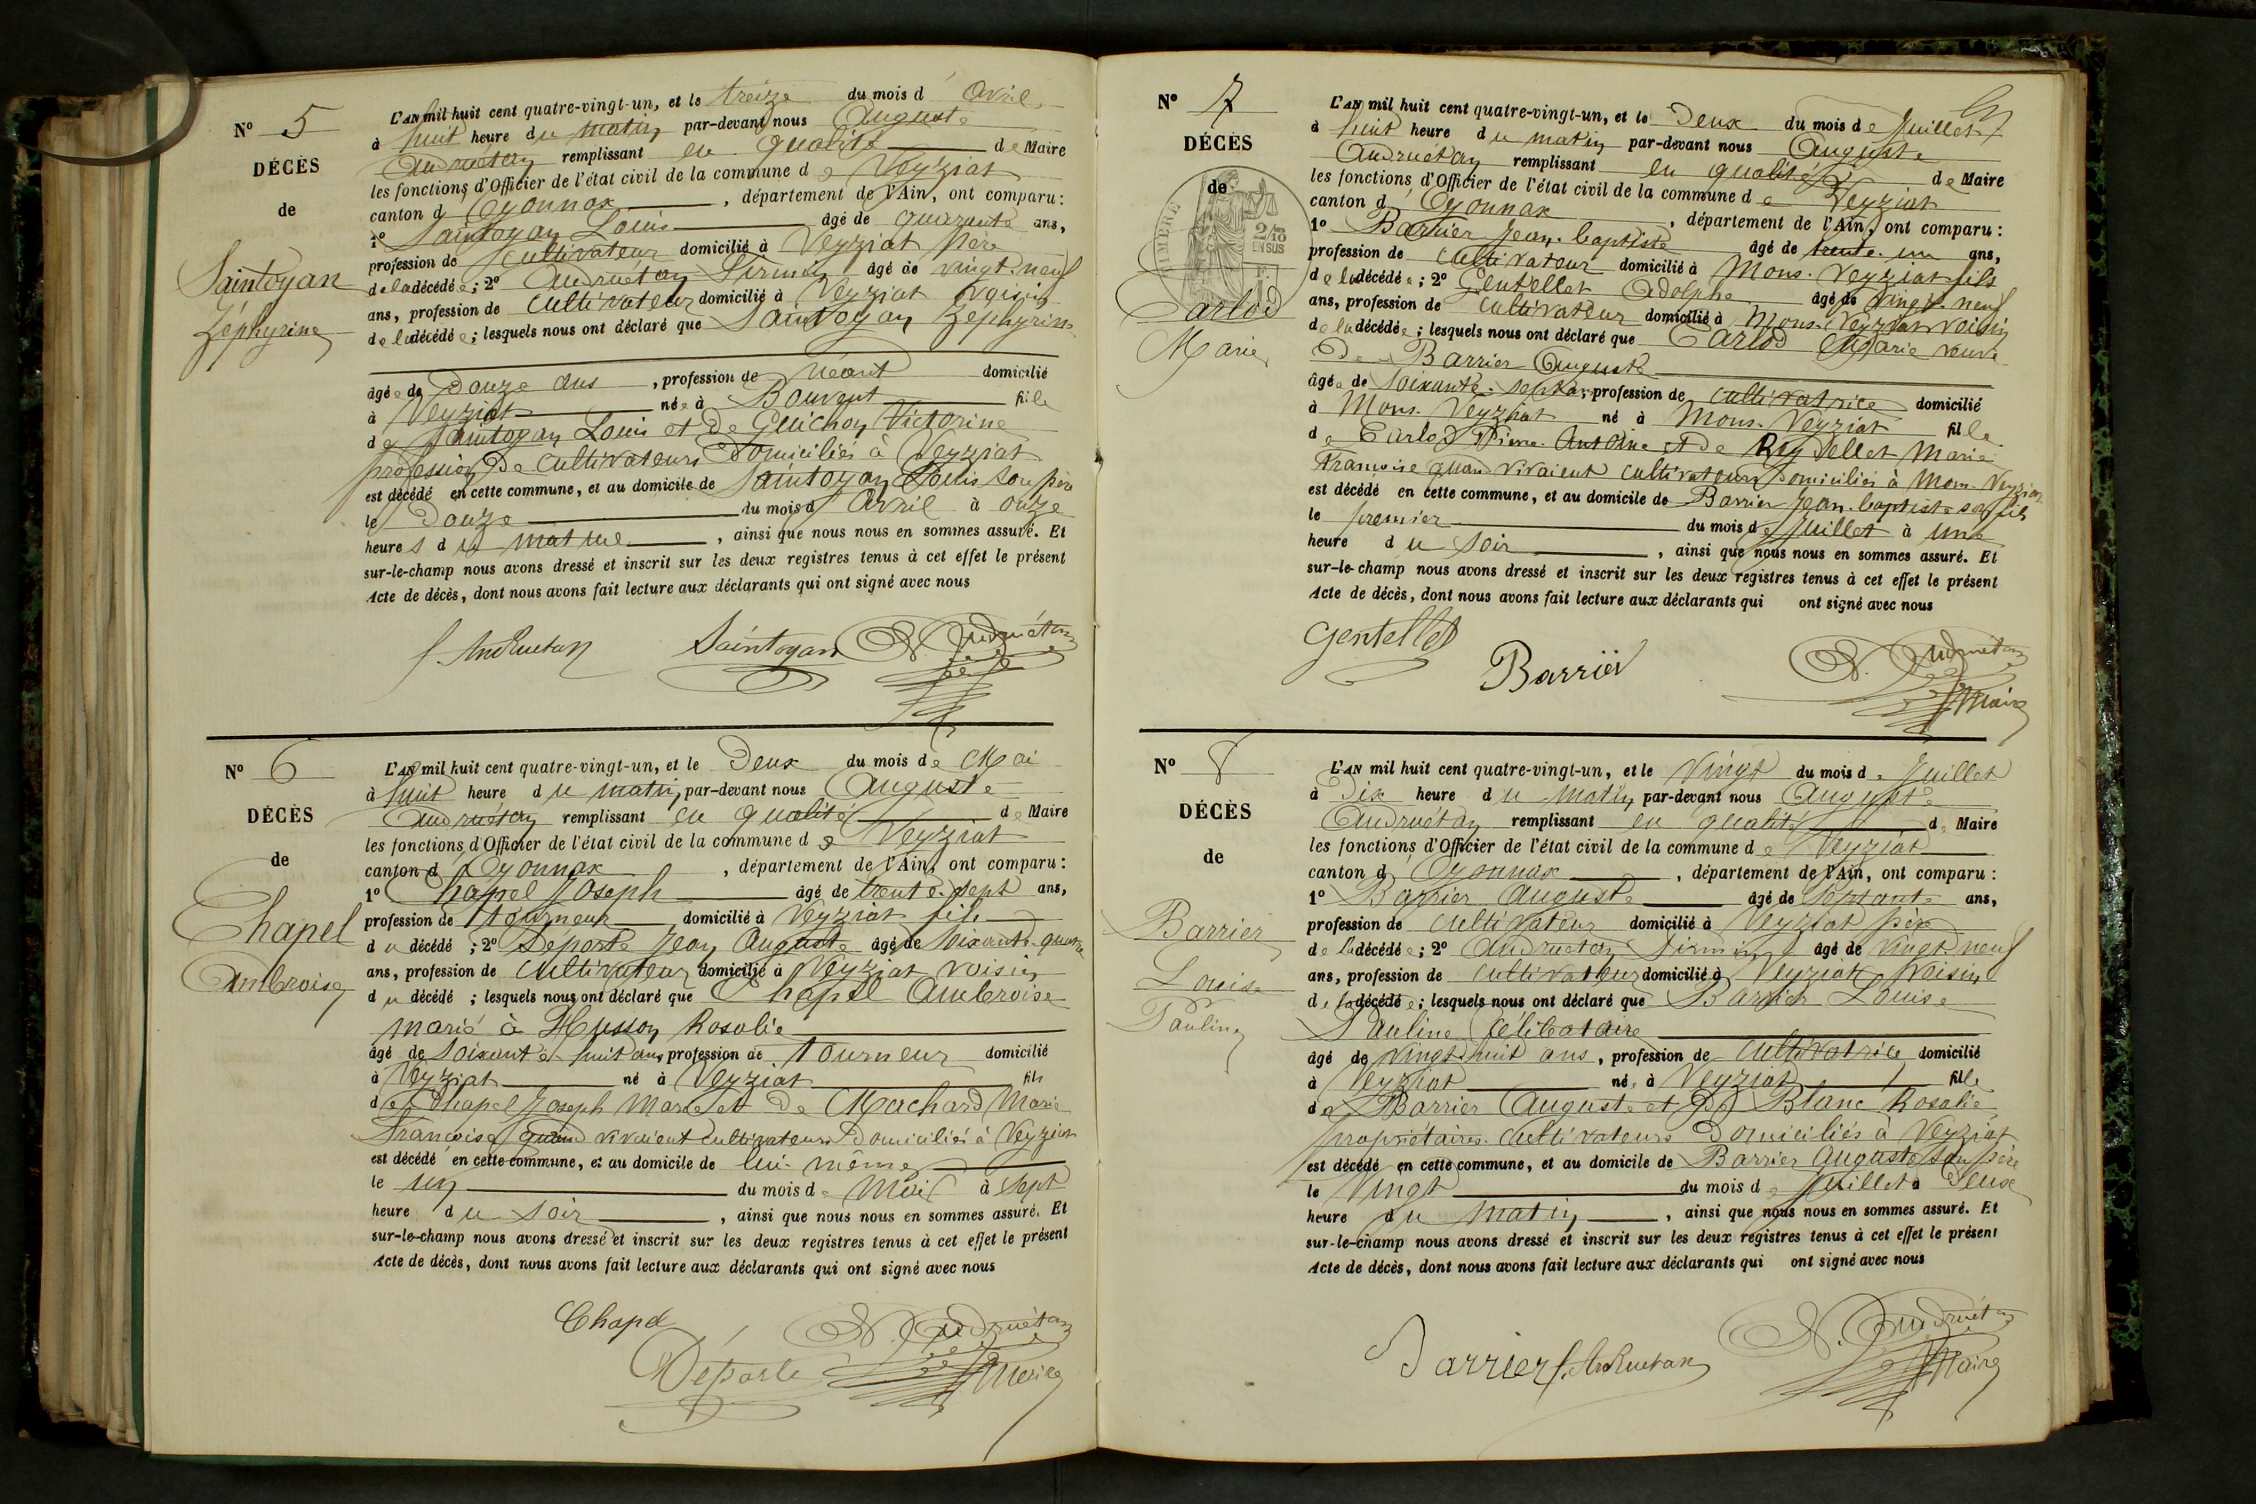 N° 5
DÉCÈS
de
Saintoyan
Zéphyrine
L'AN mil huit cent quatre-vingt-un, et le treize du mois d'avril
à huit heure du matin par-devant nous Auguste
Andruétan remplissant en qualité de Maire
les fonctions d'Officier de l'état civil de la commune de Veyziat
canton d'Oyonnax, département de l'Ain, ont comparu:
1° Saintoyan Louis âgé de quarante ans,
profession de cultivateur domicilié à Veyziat père
de la décédée; 2° Andruetan Firmin âgé de vingt-neuf
ans, profession de cultivateur domicilié à Veyziat voisin
de la décédée; lesquels nous ont déclaré que Saintoyan Zéphyrine
âgée de douze ans, profession de néant domicilié
à Veyziat née à Bouvent fille
de Saintoyan Louis et de Guichon Victorine
profession de cultivateurs domiciliés à Veyziat
est décédé en cette commune, et au domicile de Saintoyan Louis son père
le douze du mois d'avril à onze
heures du matin, ainsi que nous nous en sommes assuré. Et
sur-le-champ nous avons dressé et inscrit sur les deux registres tenus à cet effet le présent
Acte de décès, dont nous avons fait lecture aux déclarants qui ont signé avec nous
f. Andruetan Saintoyan A. Andruétan
N° 6
DÉCÈS
de
Chapel
Ambroise
L'AN mil huit cent quatre-vingt-un, et le Deux du mois de Mai
à huit heure du matin, par-devant nous Auguste
Andruétan remplissant en qualité de Maire
les fonctions d'Officier de l'état civil de la commune de Veyziat
canton d'Oyonnax, département de l'Ain, ont comparu:
1° Chapel Joseph âgé de trente-sept ans,
profession de tourneur domicilié à Veyziat fils
du décédé; 2° Déporte Jean Auguste âgé de soixante-quatre
ans, profession de cultivateur domicilié à Veyziat voisin
du décédé; lesquels nous ont déclaré que Chapel Ambroise
marié à Husson Rosalie
âgé de soixante huit ans profession de tourneur domicilié
à Veyziat né à Veyziat fils
de Chapel Joseph Marie et de Machard Marie
Françoise quand vivaient cultivateurs domiciliés à Veyziat
est décédé en cette commune, et au domicile de lui-même
le un du mois de Mai à sept
heure du soir, ainsi que nous nous en sommes assuré. Et
sur-le-champ nous avons dressé et inscrit sur les deux registres tenus à cet effet le présent
Acte de décès, dont nous avons fait lecture aux déclarants qui ont signé avec nous
Chapel Déporte A. Andruétan Maire
N° 7
DÉCÈS
de
TIMBRE
2/10
EN SUS
Carlod
Marie
L'AN mil huit cent quatre-vingt-un, et le Deux du mois de Juillet
à huit heure du matin par-devant nous Auguste
Andruétan remplissant en qualité de Maire
les fonctions d'Officier de l'état civil de la commune de Veyziat
canton d'Oyonnax, département de l'Ain, ont comparu:
1° Barrier Jean-baptiste âgé de trente-un ans,
profession de cultivateur domicilié à Mons-Veyziat fils
de la décédée; 2° Gentellet Adolphe âgé de vingt-neuf
ans, profession de cultivateur domicilié à Mons-Veyziat voisin
de la décédée; lesquels nous ont déclaré que Carlod Marie veuve
de Barrier Auguste
âgée de soixante-sept ans, profession de cultivatrice domicilié
à Mons-Veyziat né à Mons-Veyziat fille
de Carlod Pierre-Antoine et de Rigdellet Marie
Françoise quand vivaient cultivateurs domiciliés à Mons-Veyziat
est décédé en cette commune, et au domicile de Barrier Jean-baptiste son fils
le premier du mois de Juillet à une
heure du soir, ainsi que nous nous en sommes assuré. Et
sur-le-champ nous avons dressé et inscrit sur les deux registres tenus à cet effet le présent
Acte de décès, dont nous avons fait lecture aux déclarants qui ont signé avec nous
Gentellet Barrier A. Andruétan Maire
N° 8
DÉCÈS
de
Barrier
Louise
Pauline
L'AN mil huit cent quatre-vingt-un, et le Vingt du mois de Juillet
à Dix heure du matin par-devant nous Auguste
Andruetan remplissant en qualité de Maire
les fonctions d'Officier de l'état civil de la commune de Veyziat
canton d'Oyonnax, département de l'Ain, ont comparu:
1° Barrier Auguste âgé de septante ans,
profession de cultivateur domicilié à Veyziat père
de la décédée; 2° Andruetan Firmin âgé de vingt neuf
ans, profession de cultivateur domicilié à Veyziat voisin
de la décédée; lesquels nous ont déclaré que Barrier Louise
Pauline Célibataire
âgé de vingt-huit ans, profession de cultivatrice domicilié
à Veyziat née à Veyziat fille
de Barrier Auguste et de Blanc Rosalie
propriétaires cultivateurs domiciliés à Veyziat
est décédé en cette commune, et au domicile de Barrier Auguste son père
le Vingt du mois de Juillet à Deux
heure du matin, ainsi que nous nous en sommes assuré. Et
sur-le-champ nous avons dressé et inscrit sur les deux registres tenus à cet effet le présent
Acte de décès, dont nous avons fait lecture aux déclarants qui ont signé avec nous
Barrier f. Andruetan A. Andruétan Maire